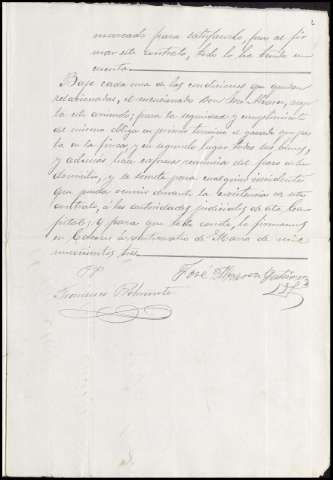 marcado para satisfacerlo, pues al fir
mar este contrato, todo lo ha tenido en
cuenta.
Bajo cada una de las condiciones que quedan
relacionadas, el mencionado Don José acep
ta este arriendo; para la seguridad y cumplimiento
del mismo obliga en primer término el ganado que pas
ta en la finca, y en segundo lugar todos sus bienes,
y además hace expresa renuncia del fuero de su
domicilio, y se somete para cualquier incidente
que pueda ocurrir durante la existencia de este
contrato, a las autoridades judiciales de esta Ca
pital; y para que todo conste, lo firmamos
en Cáceres á veinticuatro de Marzo de mil
novecientos tres.
José Gutiérrez
Francisco